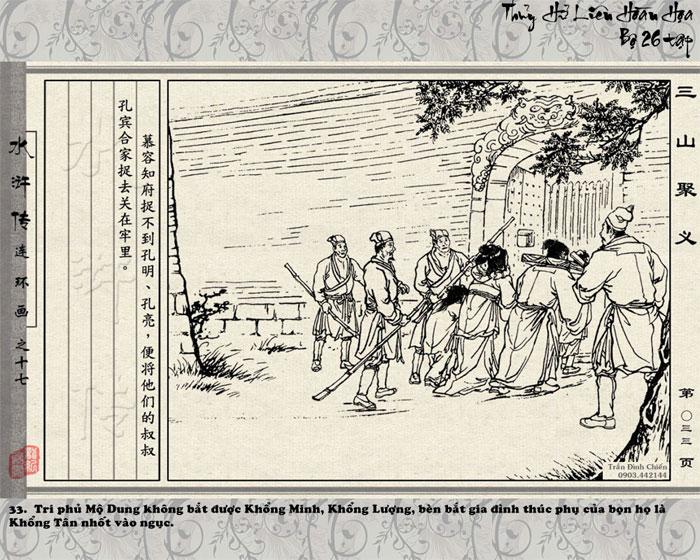 Thủy Hử Liên Hoàn Họa
Bộ 26 tập
三山聚义
水浒传连环画之十七
慕容知府捉不到孔明、孔亮，便将他们的叔叔
孔宾合家捉去关在牢里。
第〇三三页
Trần Đình Chiến
0903.442144
33. Tri phủ Mộ Dung không bắt được Khổng Minh, Khổng Lượng, bèn bắt gia đình thúc phụ của bọn họ là
Khổng Tân nhốt vào ngục.